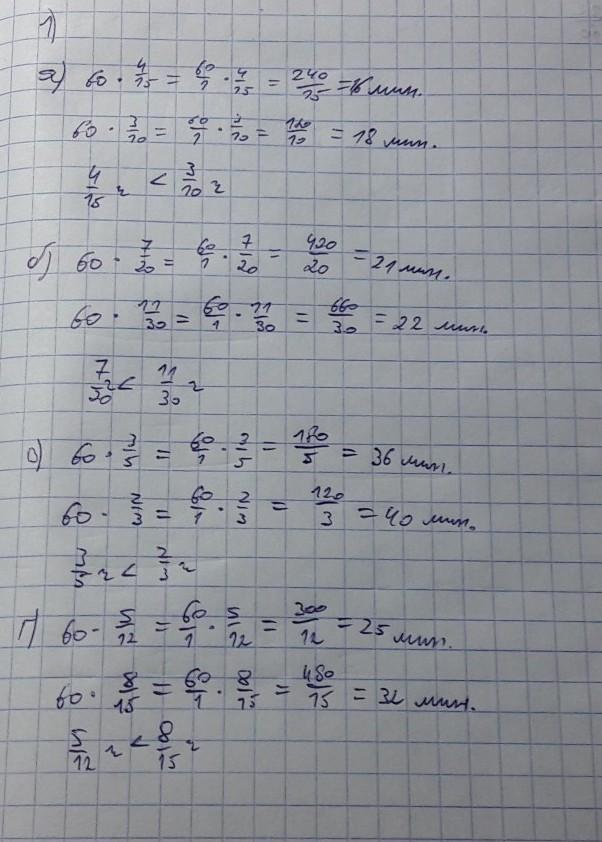 1)
а) 60 · 4/15 = 60/1 · 4/15 = 240/15 = 16 мин.
60 · 3/10 = 60/1 · 3/10 = 180/10 = 18 мин.
4/15 ч < 3/10 ч
б) 60 · 7/20 = 60/1 · 7/20 = 420/20 = 21 мин.
60 · 11/30 = 60/1 · 11/30 = 660/30 = 22 мин.
7/20 ч < 11/30 ч
в) 60 · 3/5 = 60/1 · 3/5 = 180/5 = 36 мин.
60 · 2/3 = 60/1 · 2/3 = 120/3 = 40 мин.
3/5 ч < 2/3 ч
г) 60 · 5/12 = 60/1 · 5/12 = 300/12 = 25 мин.
60 · 8/15 = 60/1 · 8/15 = 480/15 = 32 мин.
5/12 ч < 8/15 ч